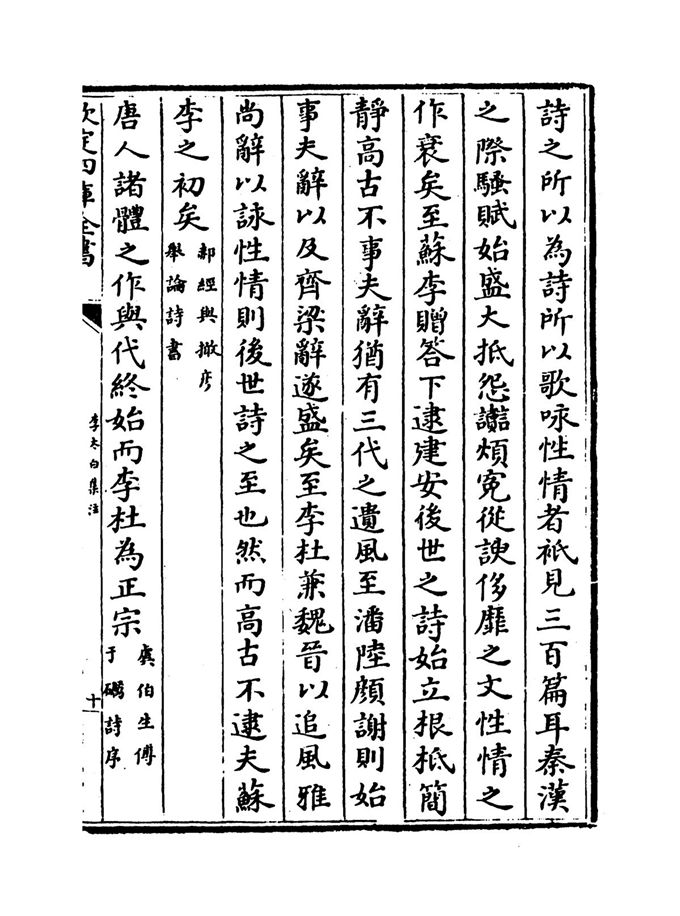 詩之所以為詩所以歌咏性情者秖見三百篇耳秦漢
之際騷賦始盛大抵怨讟煩冤從諛侈靡之文性情之
作衰矣至蘇李贈答下逮建安後世之詩始立根柢簡
靜高古不事夫辭猶有三代之遺風至潘陸顔謝則始
事夫辭以及齊梁辭遂盛矣至李杜兼魏晉以追風雅
尚辭以詠性情則後世詩之至也然而高古不逮夫蘇
李之初矣
郝經與撖彦
舉論詩書
唐人諸體之作與代終始而李杜為正宗
虞伯生傅
于礪詩序
欽定四庫全書
李太白集注
十